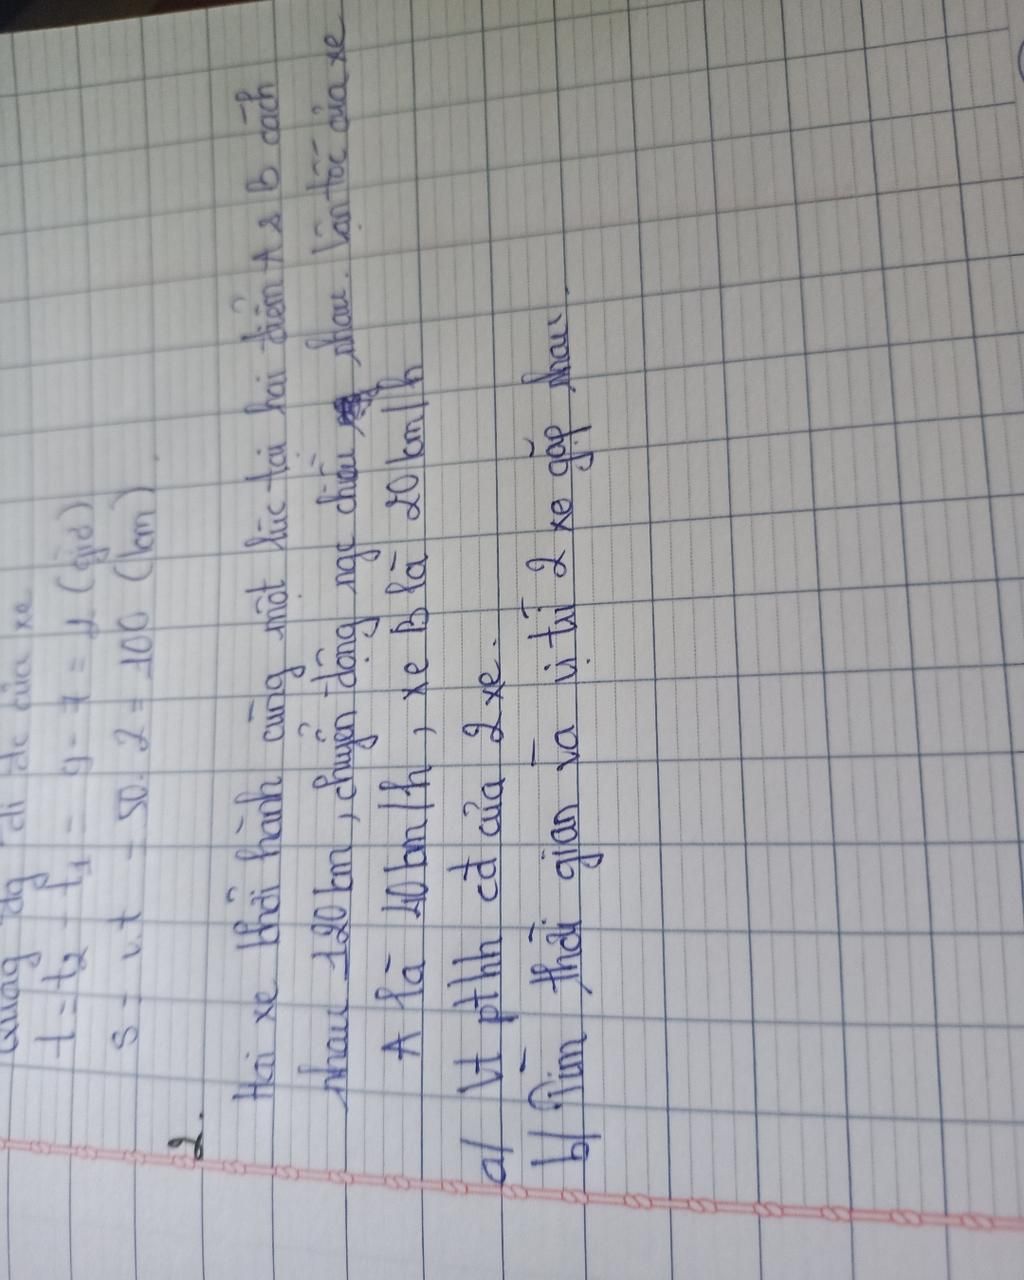 Quãng đg đi đc của xe
t = t2 - t1 = 9 - 7 = 2 (giờ)
S = v.t = 50.2 = 100 (km)
2.
Hai xe khởi hành cùng một lúc tại hai điểm A & B cách
nhau 120 km, chuyển động ngc chiều nhau. Vận tốc của xe
A là 40 km/h, xe B là 20 km/h
a/ Vt pthh cđ của 2 xe.
b/ Tìm thời gian và vị trí 2 xe gặp nhau.